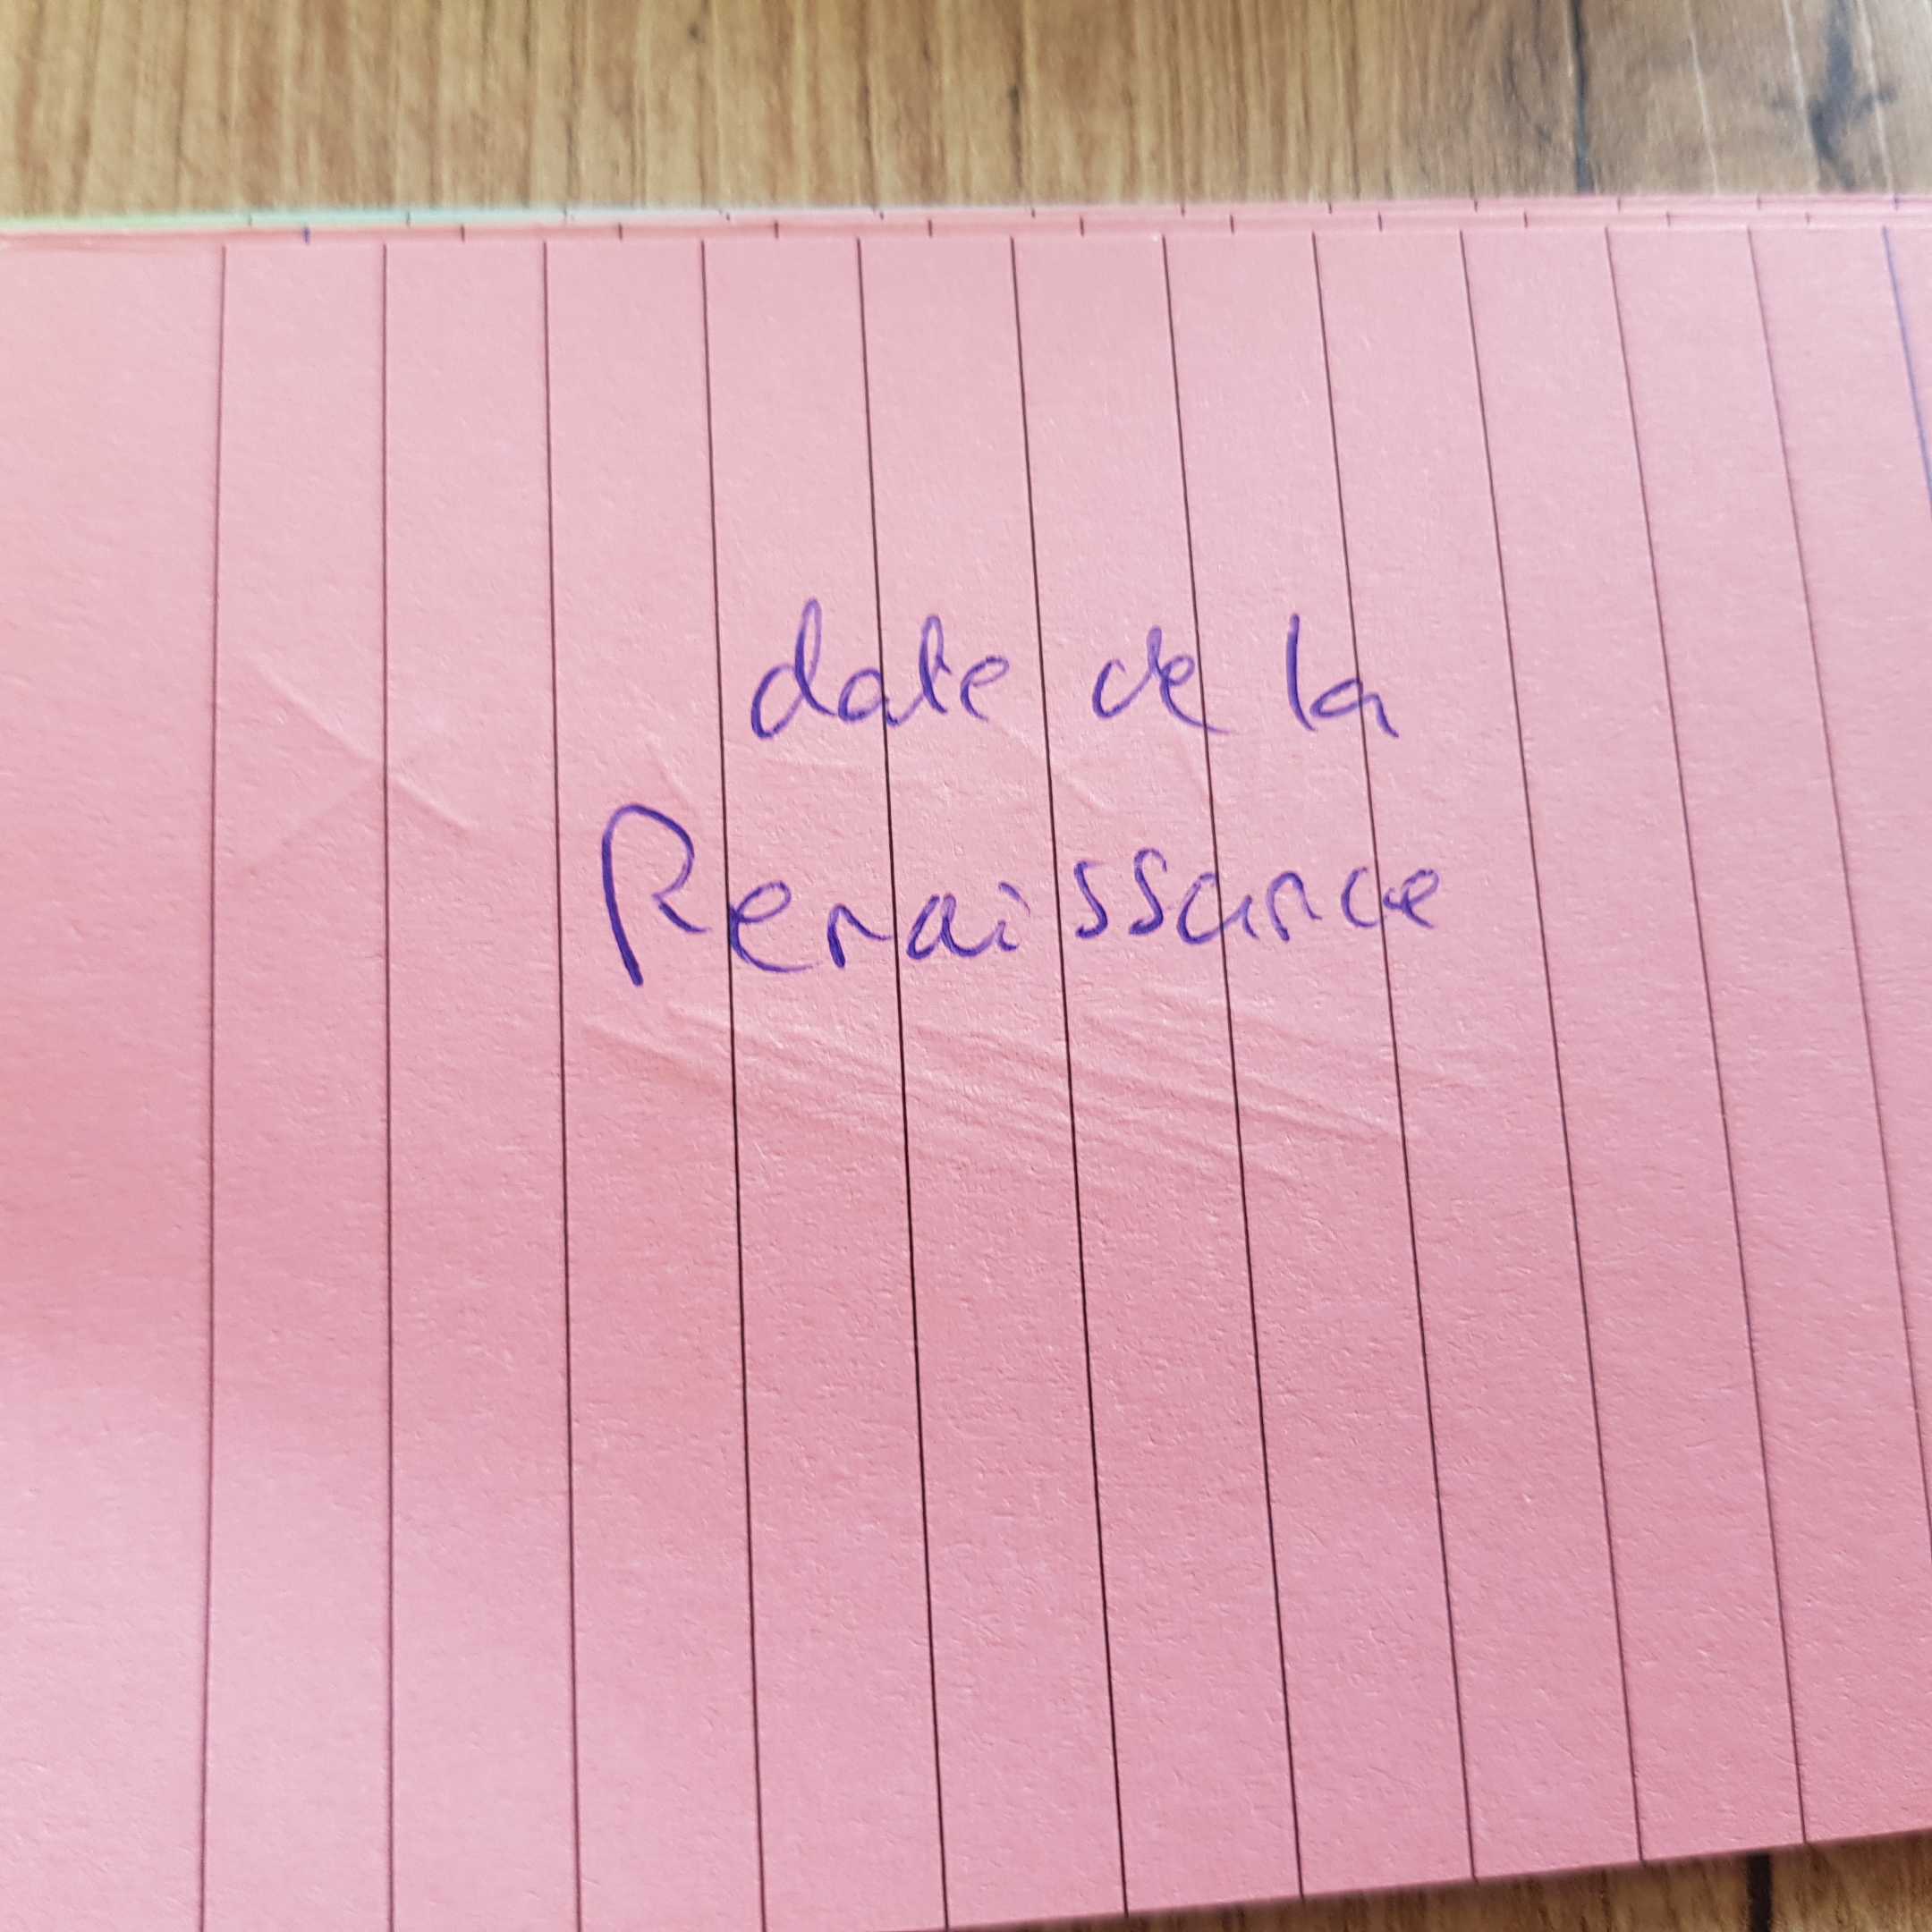 date de la
Renaissance